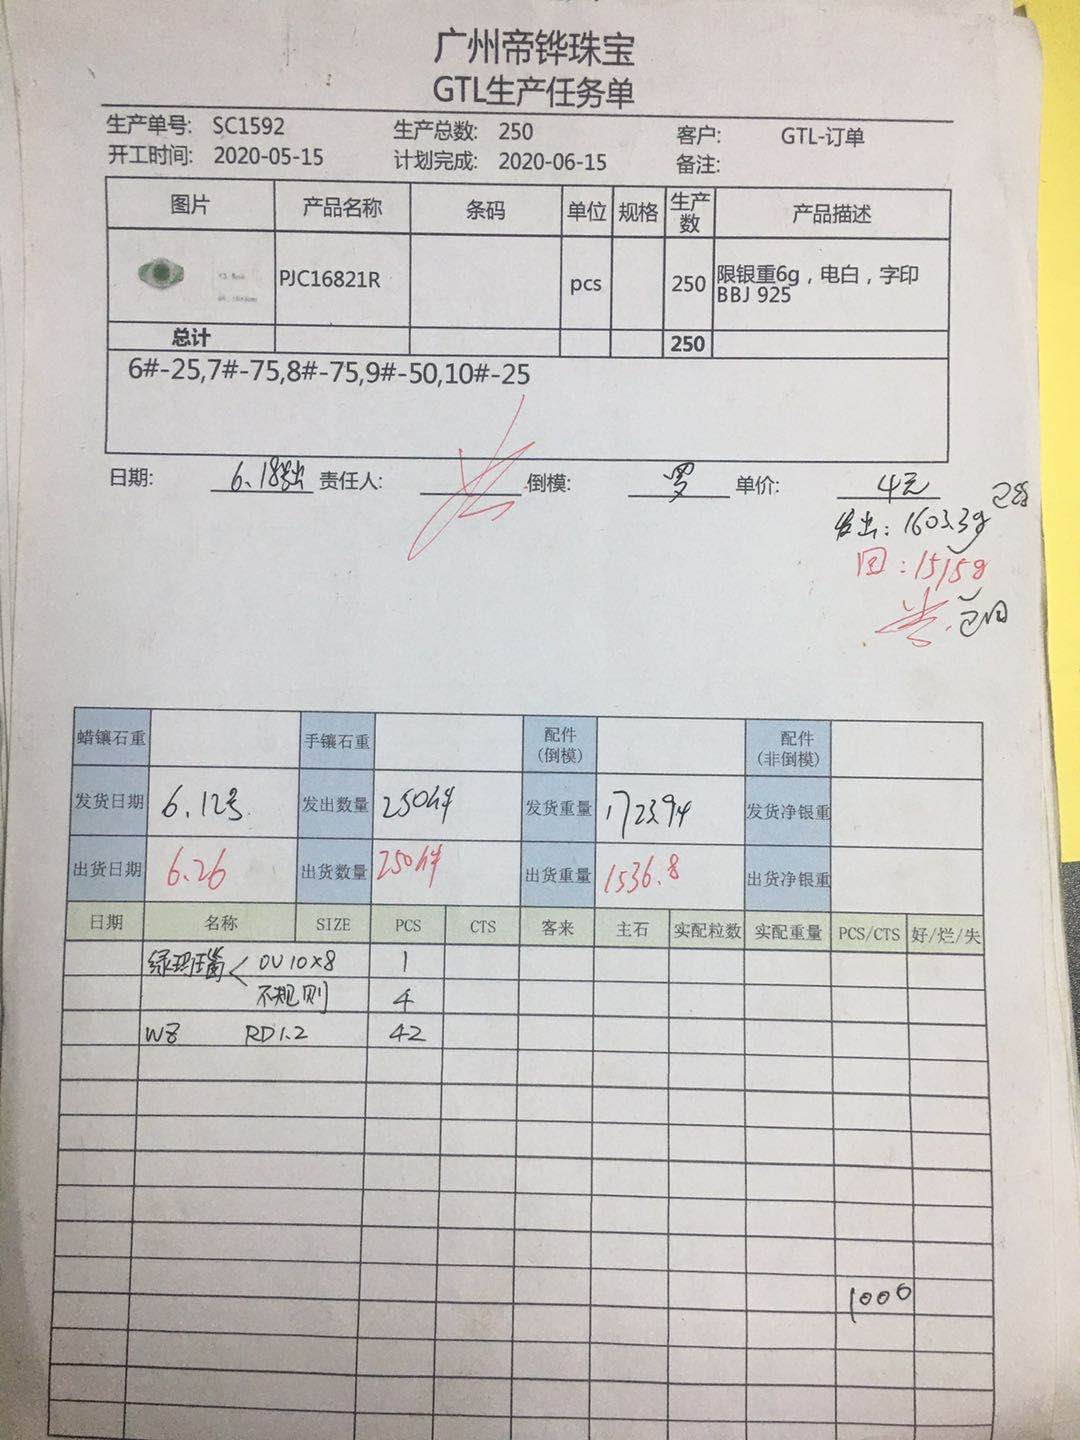 广州帝铧珠宝
GTL生产任务单
生产单号: SC1592 生产总数: 250 客户: GTL-订单
开工时间: 2020-05-15 计划完成: 2020-06-15 备注:
图片 产品名称 条码 单位 规格 生产数 产品描述
PJC16821R pcs 250 限银重6g，电白，字印
BBJ 925
总计 250
6#-25,7#-75,8#-75,9#-50,10#-25
日期: 6.18号出 责任人: 倒模: 罗 单价: 4元
发出: 1603.3g
回: 1515g
已回
蜡镶石重 手镶石重 配件(倒模) 配件(非倒模)
发货日期 6.12号 发出数量 250件 发货重量 发货净银重
出货日期 6.26 出货数量 250件 出货重量 1536.8 出货净银重
日期 名称 SIZE PCS CTS 客来 主石 实配粒数 实配重量 PCS/CTS 好/烂/失
绿玛瑙 OV10×8 1
不规则 4
WZ RD1.2 42
1000